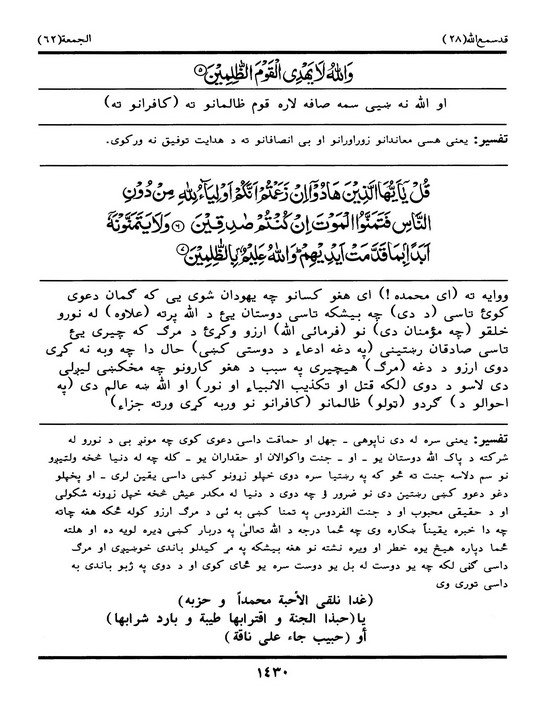 قدسمع الله(٢٨) الجمعة(٦٢)
وَاللّٰهُ لَا يَهْدِي الْقَوْمَ الظّٰلِمِيْنَ ⑤
او الله نه ښيي سمه صافه لاره قوم ظالمانو ته (کافرانو ته)
تفسير: يعنی هسی معاندانو زوراورانو او بی انصافانو ته د هدايت توفيق نه ورکوی.
قُلْ يٰۤاَيُّهَا الَّذِيْنَ هَادُوْۤا اِنْ زَعَمْتُمْ اَنَّكُمْ اَوْلِيَآءُ لِلّٰهِ مِنْ دُوْنِ
النَّاسِ فَتَمَنَّوُا الْمَوْتَ اِنْ كُنْتُمْ صٰدِقِيْنَ ⑥ وَلَا يَتَمَنَّوْنَهٗۤ
اَبَدًۢا بِمَا قَدَّمَتْ اَيْدِيْهِمْ ؕ وَاللّٰهُ عَلِيْمٌۢ بِالظّٰلِمِيْنَ ⑦
ووايه ته (ای محمده!) ای هغو کسانو چه يهودان شوی يی که گمان دعوی
کوئ تاسی (د دی) چه بيشکه تاسی دوستان يئ د الله پرته (علاوه) له نورو
خلقو (چه مؤمنان دی) نو (فرمائی الله) ارزو وکړئ د مرگ که چيری يئ
تاسی صادقان رښتينی (په دغه ادعاء د دوستی کښی) حال دا چه وبه نه کړی
دوی ارزو د دغه (مرگ) هيچيری په سبب د هغو کارونو چه مخکښی ليږلی
دی لاسو د دوی (لکه قتل او تکذيب الانبياء او نور) او الله ښه عالم دی (په
احوالو د) گردو (ټولو) ظالمانو (کافرانو نو وربه کړی ورته جزاء)
تفسير: يعنی سره له دی ناپوهی ـ جهل او حماقت داسی دعوی کوی چه مونږ بی د نورو له
شرکته د پاک الله دوستان يو ـ او ـ جنت واکوالان او حقداران يو ـ کله چه له دنيا څخه ولتيږو
نو سم دلاسه جنت ته ځو که په رښتيا سره دوی خپلو زړونو کښی داسی يقين لری ـ او پخپلو
دغو دعوو کښی رښتين دی نو ضرور ؤ چه دوی د دنيا له مکدر عيش څخه خپل زړونه شکولی
او د حقيقی محبوب او د جنت الفردوس په تمنا کښی به ئی د مرگ ارزو کوله ځکه هغه چاته
چه دا خبره يقيناً ښکاره وی چه ځما درجه د الله تعالیٰ په دربار کښی ډيره لويه ده او هلته
ځما دپاره هيڅ يوه خطر او ويره نشته نو هغه بيشکه په مړ کيدلو باندی خوښيږی او مرگ
داسی گڼی لکه چه يو دوست له بل يو دوست سره يو ځای کوی او د دوی په ژبو باندی به
داسی توری وی
(غدا نلقی الأحبة محمداً و حزبه)
يا(حبذا الجنة و اقترابها طيبة و بارد شرابها)
أو (حبيب جاء علی ناقة)
١٤٣٠